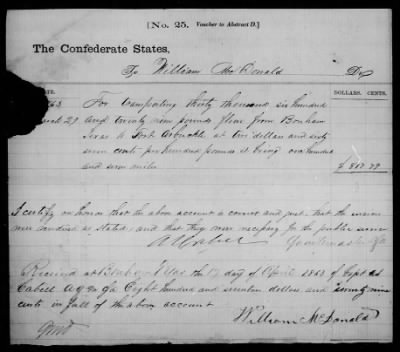 [No. 25. Voucher to Abstract D.]
The Confederate States,
To William McDonald Dr
DATE. DOLLARS. CENTS.
63 For transporting thirty thousand six hundred
March 29 and twenty nine pounds flour from Bonham
Texas to Fort Arbuckle at two dollars and sixty
seven cents per hundred pounds it being one hundred
and seven miles $ 817 79
I certify on honor that the above account is correct and just; that the services
were rendered as stated; and that they were necessary for the public service
Quartermaster
Received at Bonham Texas the 17 day of April 1863 of Capt
Cabell Eight hundred and seventeen dollars and seventy nine
cents in full of the above account
William McDonald